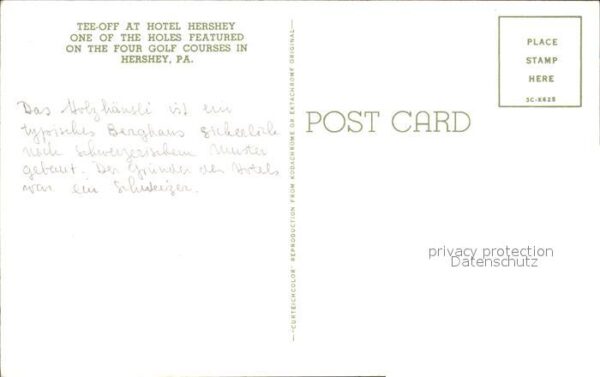 TEE-OFF AT HOTEL HERSHEY
ONE OF THE HOLES FEATURED
ON THE FOUR GOLF COURSES IN
HERSHEY, PA.
Das Holzhäusli ist ein
typisches Berghaus Sicherlich
nach Schweizerischem Muster
gebaut. Der Gründer des Hotels
war ein Schweizer.
"CURTEICHCOLOR" REPRODUCTION FROM KODACHROME OR EKTACHROME ORIGINAL
POST CARD
PLACE
STAMP
HERE
3C-K628
privacy protection
Datenschutz